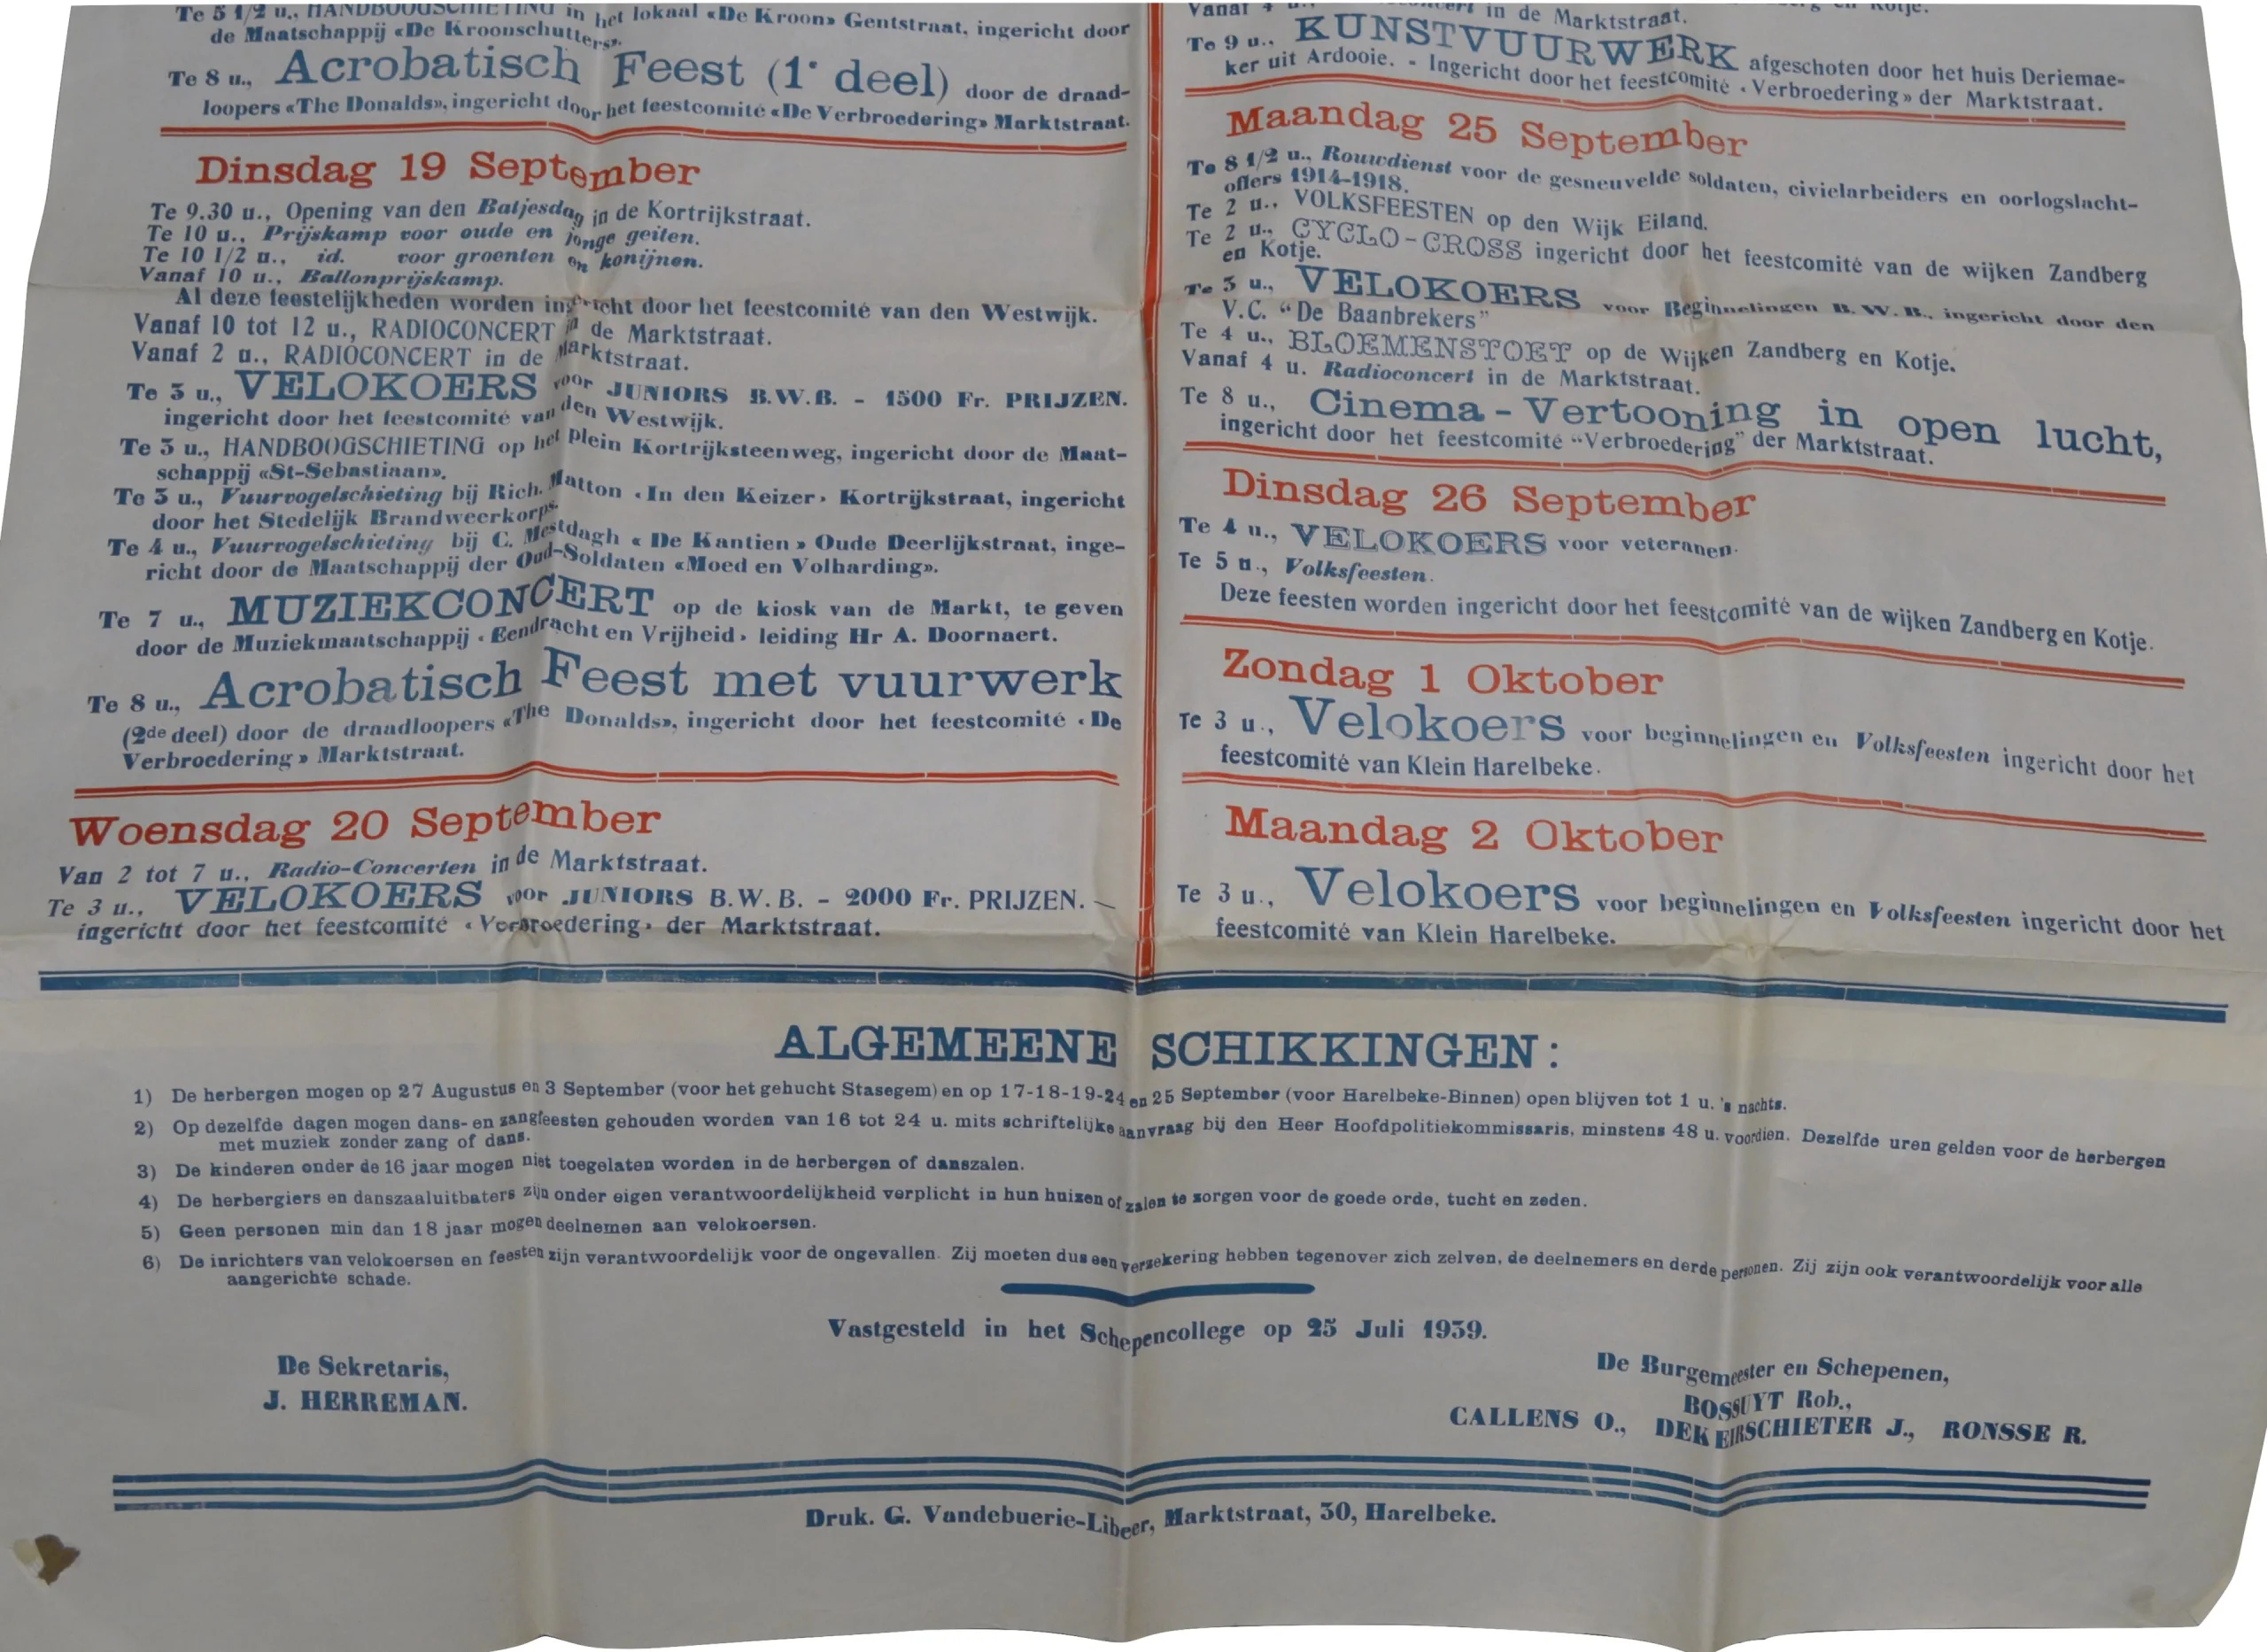 Te 5 1/2 u., HANDBOOGSCHIETING in het lokaal «De Kroon» Gentstraat, ingericht door
de Maatschappij «De Kroonschutters».
Te 8 u., Acrobatisch Feest (1e deel) door de draad-
loopers «The Donalds», ingericht door het feestcomité «De Verbroedering» Marktstraat.
Dinsdag 19 September
Te 9.30 u., Opening van den Batjesdag in de Kortrijkstraat.
Te 10 u., Prijskamp voor oude en jonge geiten.
Te 10 1/2 u., id. voor groenten en konijnen.
Vanaf 10 u., Ballonprijskamp.
Al deze feestelijkheden worden ingericht door het feestcomité van den Westwijk.
Vanaf 10 tot 12 u., RADIOCONCERT in de Marktstraat.
Vanaf 2 u., RADIOCONCERT in de Marktstraat.
Te 3 u., VELOKOERS voor JUNIORS B.W.B. - 1500 Fr. PRIJZEN.
ingericht door het feestcomité van den Westwijk.
Te 3 u., HANDBOOGSCHIETING op het plein Kortrijksteenweg, ingericht door de Maat-
schappij «St-Sebastiaan».
Te 3 u., Vuurvogelschieting bij Rich. Matton «In den Keizer» Kortrijkstraat, ingericht
door het Stedelijk Brandweerkorps.
Te 4 u., Vuurvogelschieting bij C. Mestdagh « De Kantien » Oude Deerlijkstraat, inge-
richt door de Maatschappij der Oud-Soldaten «Moed en Volharding».
Te 7 u., MUZIEKCONCERT op de kiosk van de Markt, te geven
door de Muziekmaatschappij « Eendracht en Vrijheid » leiding Hr A. Doornaert.
Te 8 u., Acrobatisch Feest met vuurwerk
(2de deel) door de draadloopers «The Donalds», ingericht door het feestcomité « De
Verbroedering » Marktstraat.
Woensdag 20 September
Van 2 tot 7 u., Radio-Concerten in de Marktstraat.
Te 3 u., VELOKOERS voor JUNIORS B.W.B. - 2000 Fr. PRIJZEN. —
ingericht door het feestcomité « Verbroedering » der Marktstraat.
Vanaf 4 u., in de Marktstraat.
Te 9 u., KUNSTVUURWERK afgeschoten door het huis Deriemae-
ker uit Ardooie. - Ingericht door het feestcomité « Verbroedering » der Marktstraat.
Maandag 25 September
Te 8 1/2 u., Rouwdienst voor de gesneuvelde soldaten, civielarbeiders en oorlogslacht-
offers 1914-1918.
Te 2 u., VOLKSFEESTEN op den Wijk Eiland.
Te 2 u., CYCLO-CROSS ingericht door het feestcomité van de wijken Zandberg
en Kotje.
Te 3 u., VELOKOERS voor Beginnelingen B.W.B., ingericht door den
V.C. “De Baanbrekers”
Te 4 u., BLOEMENSTOET op de Wijken Zandberg en Kotje.
Vanaf 4 u. Radioconcert in de Marktstraat.
Te 8 u., Cinema-Vertooning in open lucht,
ingericht door het feestcomité “Verbroedering” der Marktstraat.
Dinsdag 26 September
Te 4 u., VELOKOERS voor veteranen.
Te 5 u., Volksfeesten.
Deze feesten worden ingericht door het feestcomité van de wijken Zandberg en Kotje.
Zondag 1 Oktober
Te 3 u., Velokoers voor beginnelingen en Volksfeesten ingericht door het
feestcomité van Klein Harelbeke.
Maandag 2 Oktober
Te 3 u., Velokoers voor beginnelingen en Volksfeesten ingericht door het
feestcomité van Klein Harelbeke.
ALGEMEENE SCHIKKINGEN :
1) De herbergen mogen op 27 Augustus en 3 September (voor het gehucht Stasegem) en op 17-18-19-24 en 25 September (voor Harelbeke-Binnen) open blijven tot 1 u. 's nachts.
2) Op dezelfde dagen mogen dans- en zangfeesten gehouden worden van 16 tot 24 u. mits schriftelijke aanvraag bij den Heer Hoofdpolitiekommissaris, minstens 48 u. voordien. Dezelfde uren gelden voor de herbergen
met muziek zonder zang of dans.
3) De kinderen onder de 16 jaar mogen niet toegelaten worden in de herbergen of danszalen.
4) De herbergiers en danszaaluitbaters zijn onder eigen verantwoordelijkheid verplicht in hun huizen of zalen te zorgen voor de goede orde, tucht en zeden.
5) Geen personen min dan 18 jaar mogen deelnemen aan velokoersen.
6) De inrichters van velokoersen en feesten zijn verantwoordelijk voor de ongevallen. Zij moeten dus een verzekering hebben tegenover zich zelven, de deelnemers en derde personen. Zij zijn ook verantwoordelijk voor alle
aangerichte schade.
Vastgesteld in het Schepencollege op 25 Juli 1939.
De Sekretaris,
J. HERREMAN.
De Burgemeester en Schepenen,
BOSSUYT Rob.,
CALLENS O., DEKEIRSCHIETER J., RONSSE R.
Druk. G. Vandebuerie-Libeer, Marktstraat, 30, Harelbeke.